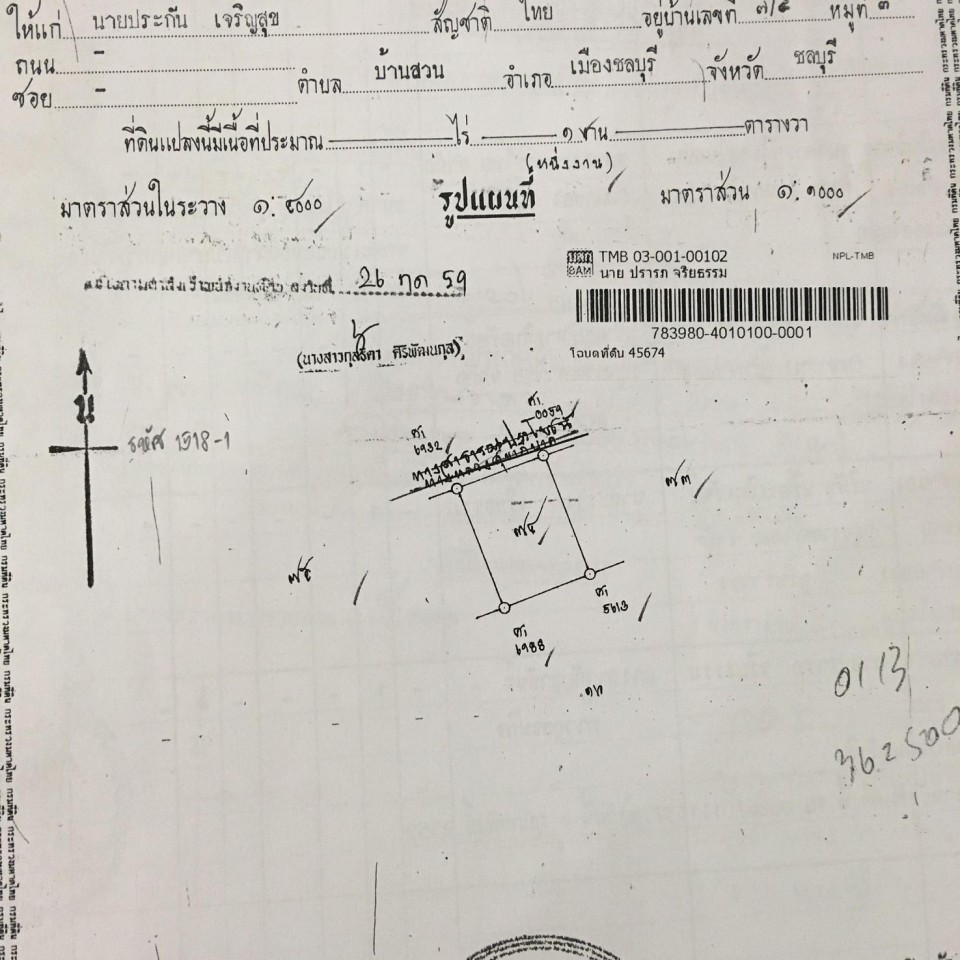 ให้แก่ นายประกัน เจริญสุข สัญชาติ ไทย อยู่บ้านเลขที่ ๗/๕ หมู่ที่ ๓
ถนน -
ซอย - ตำบล บ้านสวน อำเภอ เมืองชลบุรี จังหวัด ชลบุรี
ที่ดินแปลงนี้มีเนื้อที่ประมาณ ไร่ ๑ งาน ตารางวา
(หนึ่งงาน)
มาตราส่วนในระวาง ๑:๔๐๐๐ รูปแผนที่ มาตราส่วน ๑:๑๐๐๐
BAM TMB 03-001-00102 NPL-TMB
นาย ปรารภ จริยธรรม
26 ตค 59
783980-4010100-0001
(นางสาวกุลธิดา ศิริพัฒนกุล)
โฉนดที่ดิน 45674
น
รหัส 1518-1
ศ1
0059
ศ1
6932
๗๓
๗๔
๗๕
ศ1
5613
ศ1
6988
0113
362500